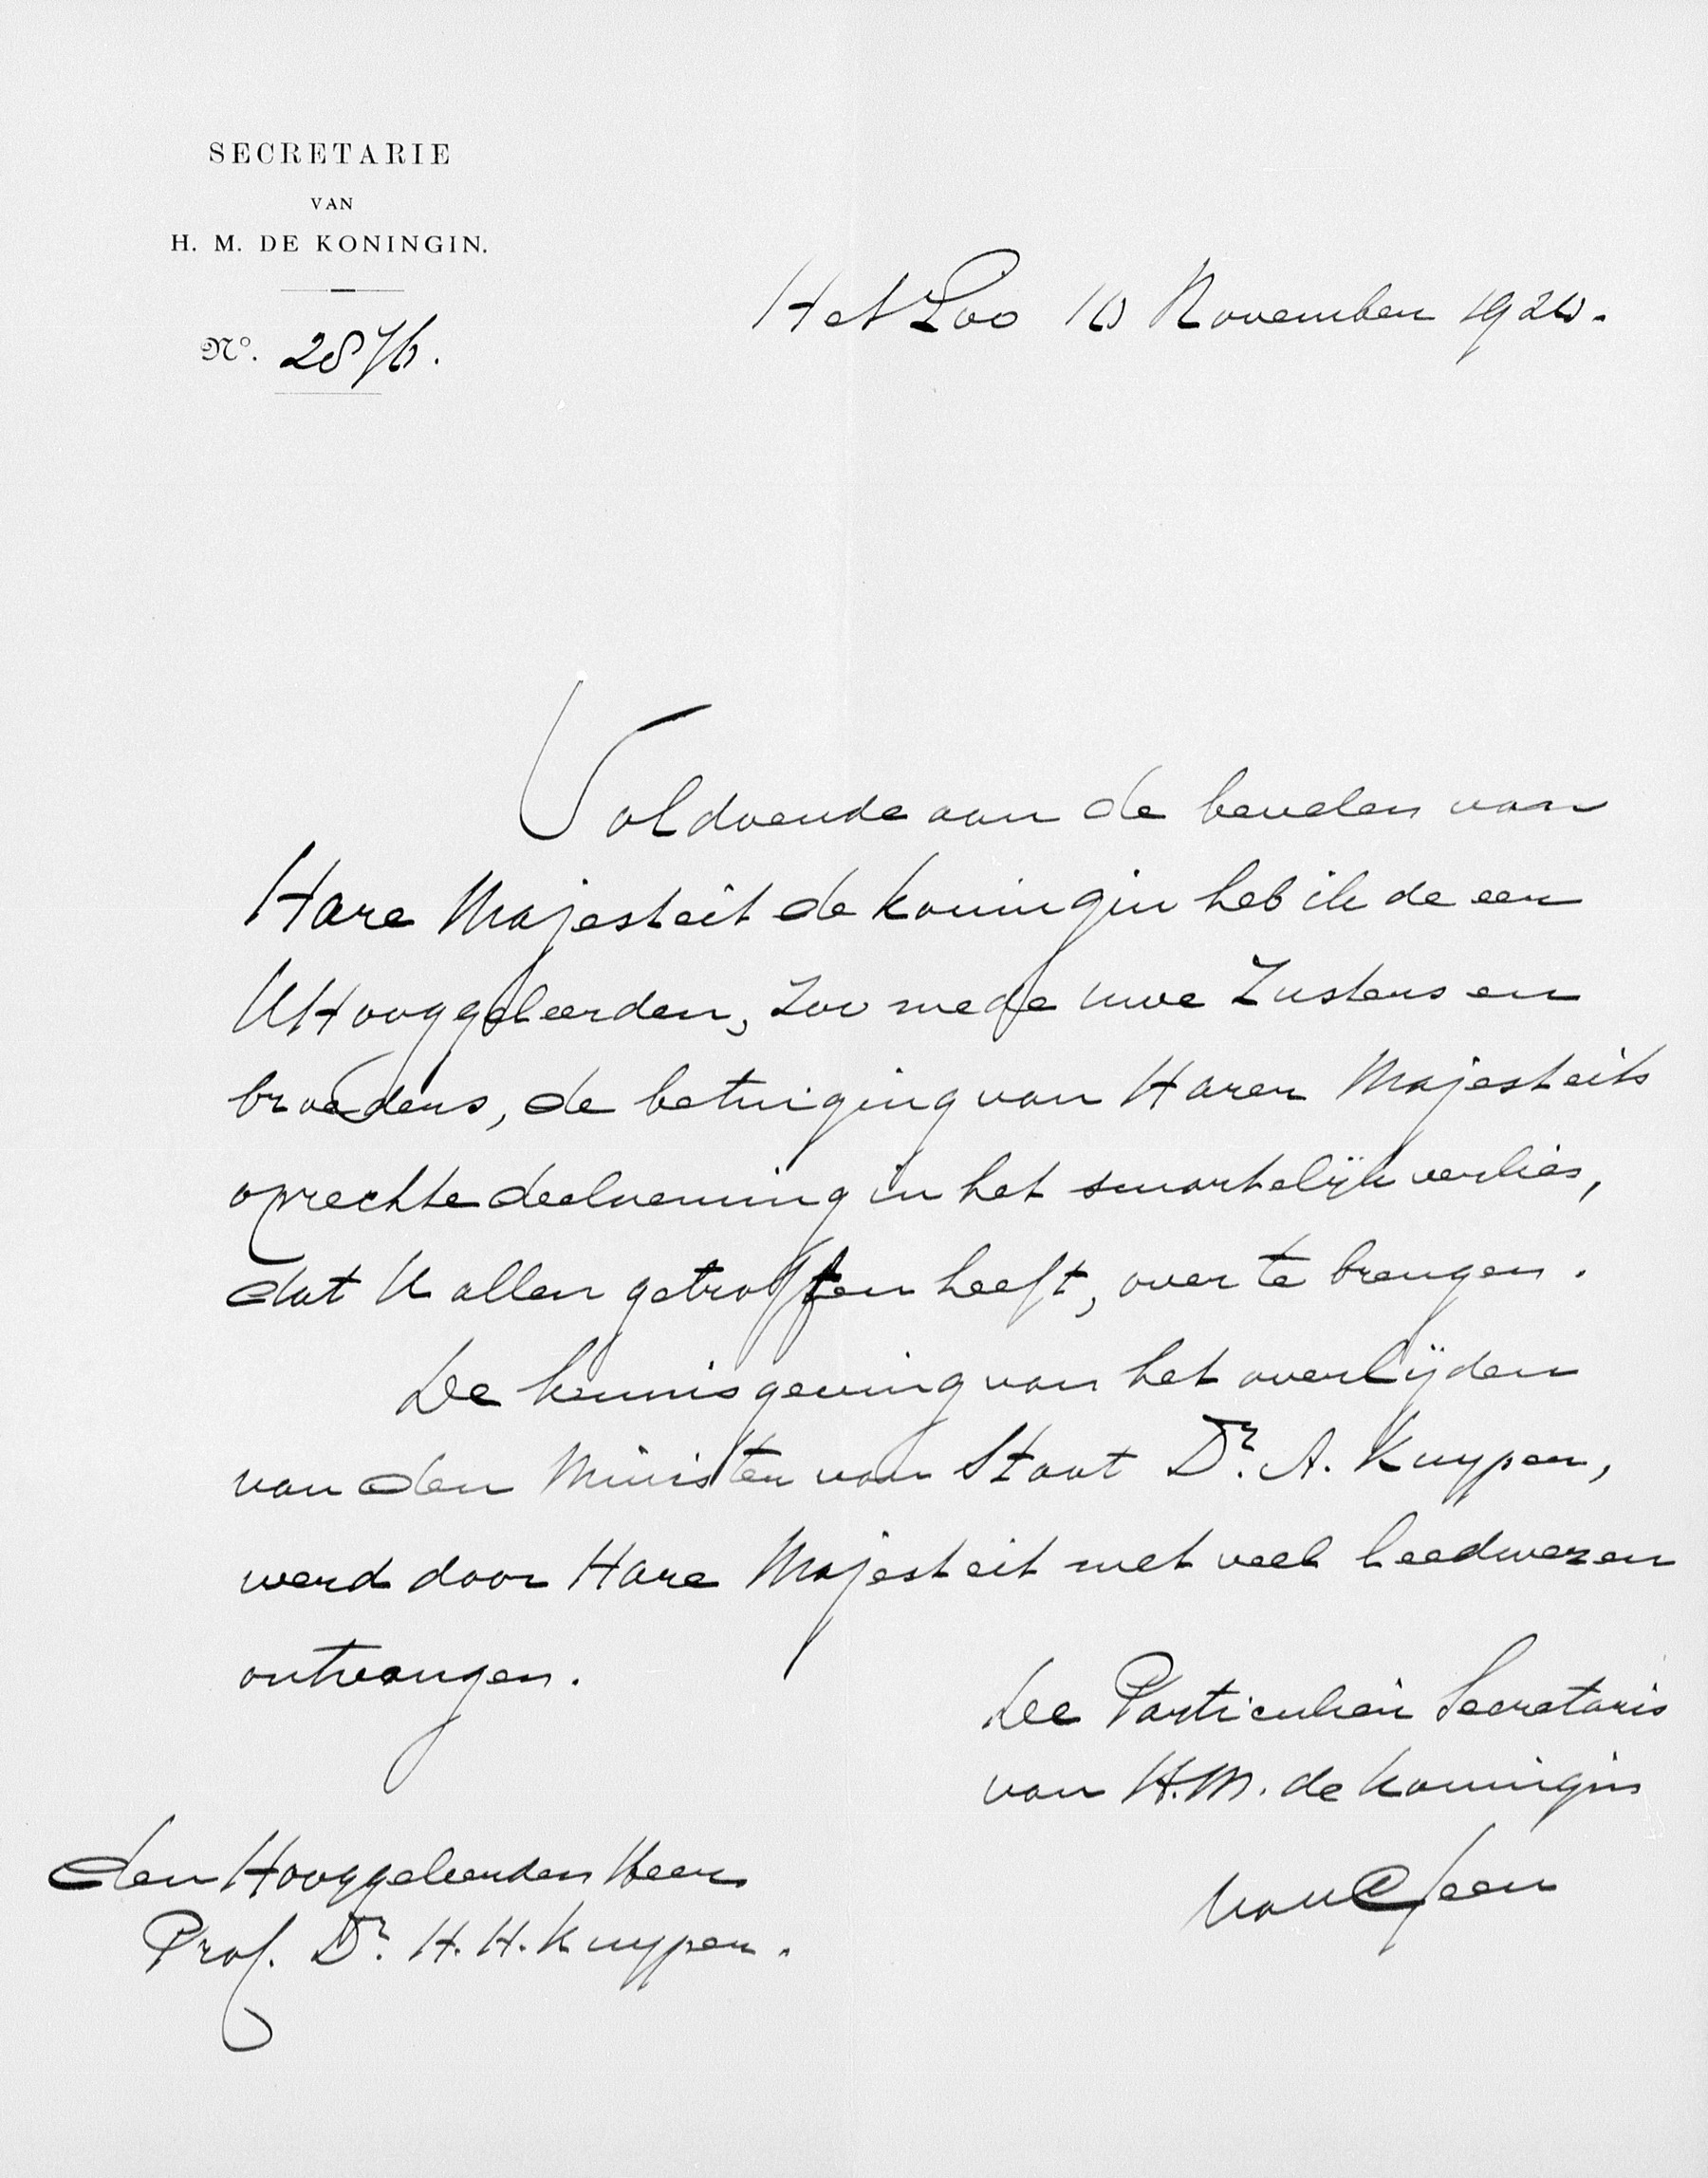 SECRETARIE
VAN
H. M. DE KONINGIN.
Nº. 2876.
Het Loo 10 November 1920.
Voldoende aan de bevelen van
Hare Majesteit de Koningin heb ik de eer
UHooggeleerden, zoo mede uwe Zusters en
broeders, de betuiging van Harer Majesteits
oprechte deelneming in het smartelijk verlies,
dat U allen getroffen heeft, over te brengen.
De kennisgeving van het overlijden
van den Minister van Staat Dr. A. Kuyper,
werd door Hare Majesteit met veel leedwezen
ontvangen.
De Particulier Secretaris
van H.M. de Koningin
van Geen
den Hooggeleerden Heer
Prof. Dr. H. H. Kuyper.